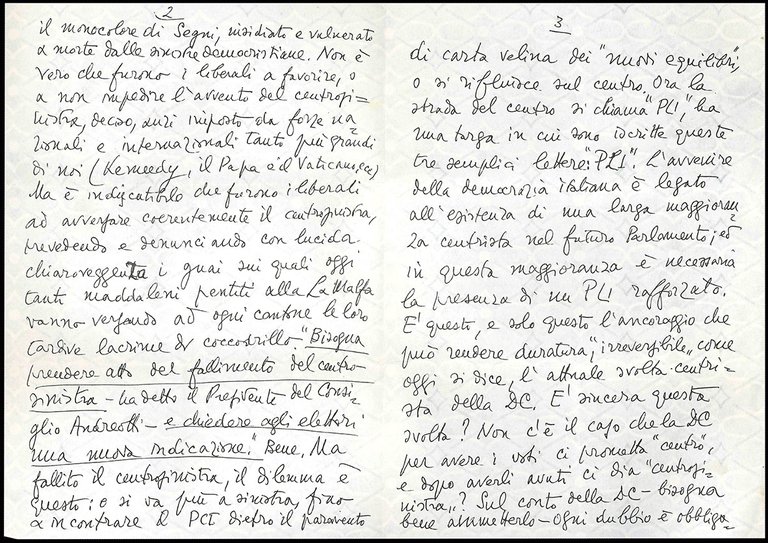 2
il monocolore di Segni, insidiato e vulnerato
a morte dalle sinistre democristiane. Non è
vero che furono i liberali a favorire, o
a non impedire l'avvento del centrosi=
nistra, deciso, anzi imposto da forze na
zionali e internazionali tanto più grandi
di noi (Kennedy, il Papa ed Vaticano, ecc)
Ma è indiscutibile che furono i liberali
ad avversare coerentemente il centrosinistra,
prevedendo e denunciando con lucida
chiaroveggenza i guai sui quali oggi
tanti maddaleni pentiti alla La Malfa
vanno versando ad ogni cantone le loro
tardive lacrime di coccodrillo. "Bisogna
prendere atto del fallimento del centro-
sinistra - ha detto il Presidente del Consi=
glio Andreotti - e chiedere agli elettori
una nuova indicazione." Bene. Ma
fallito il centrosinistra, il dilemma è
questo: o si va più a sinistra, fino
a incontrare il PCI dietro il paravento
3
di carta velina dei "nuovi equilibri",
o si rifluisce sul centro. Ora la
strada del centro si chiama "PLI", ha
una targa in cui sono iscritte queste
tre semplici lettere: "PLI". L'avvenire
della democrazia italiana è legato
all'esistenza di una larga maggioran
za centrista nel futuro Parlamento; ed
in questa maggioranza è necessaria
la presenza di un PLI rafforzato.
E' questo, e solo questo l'ancoraggio che
può rendere duratura, "irreversibile" come
oggi si dice, l'attuale svolta centri=
sta della DC. E' sincera questa
svolta? Non c'è il caso che la DC
per avere i voti ci prometta "centro",
e dopo averli avuti ci dia "centrosi=
nistra"? Sul conto della DC - bisogna
bene ammetterlo - ogni dubbio è obbliga=